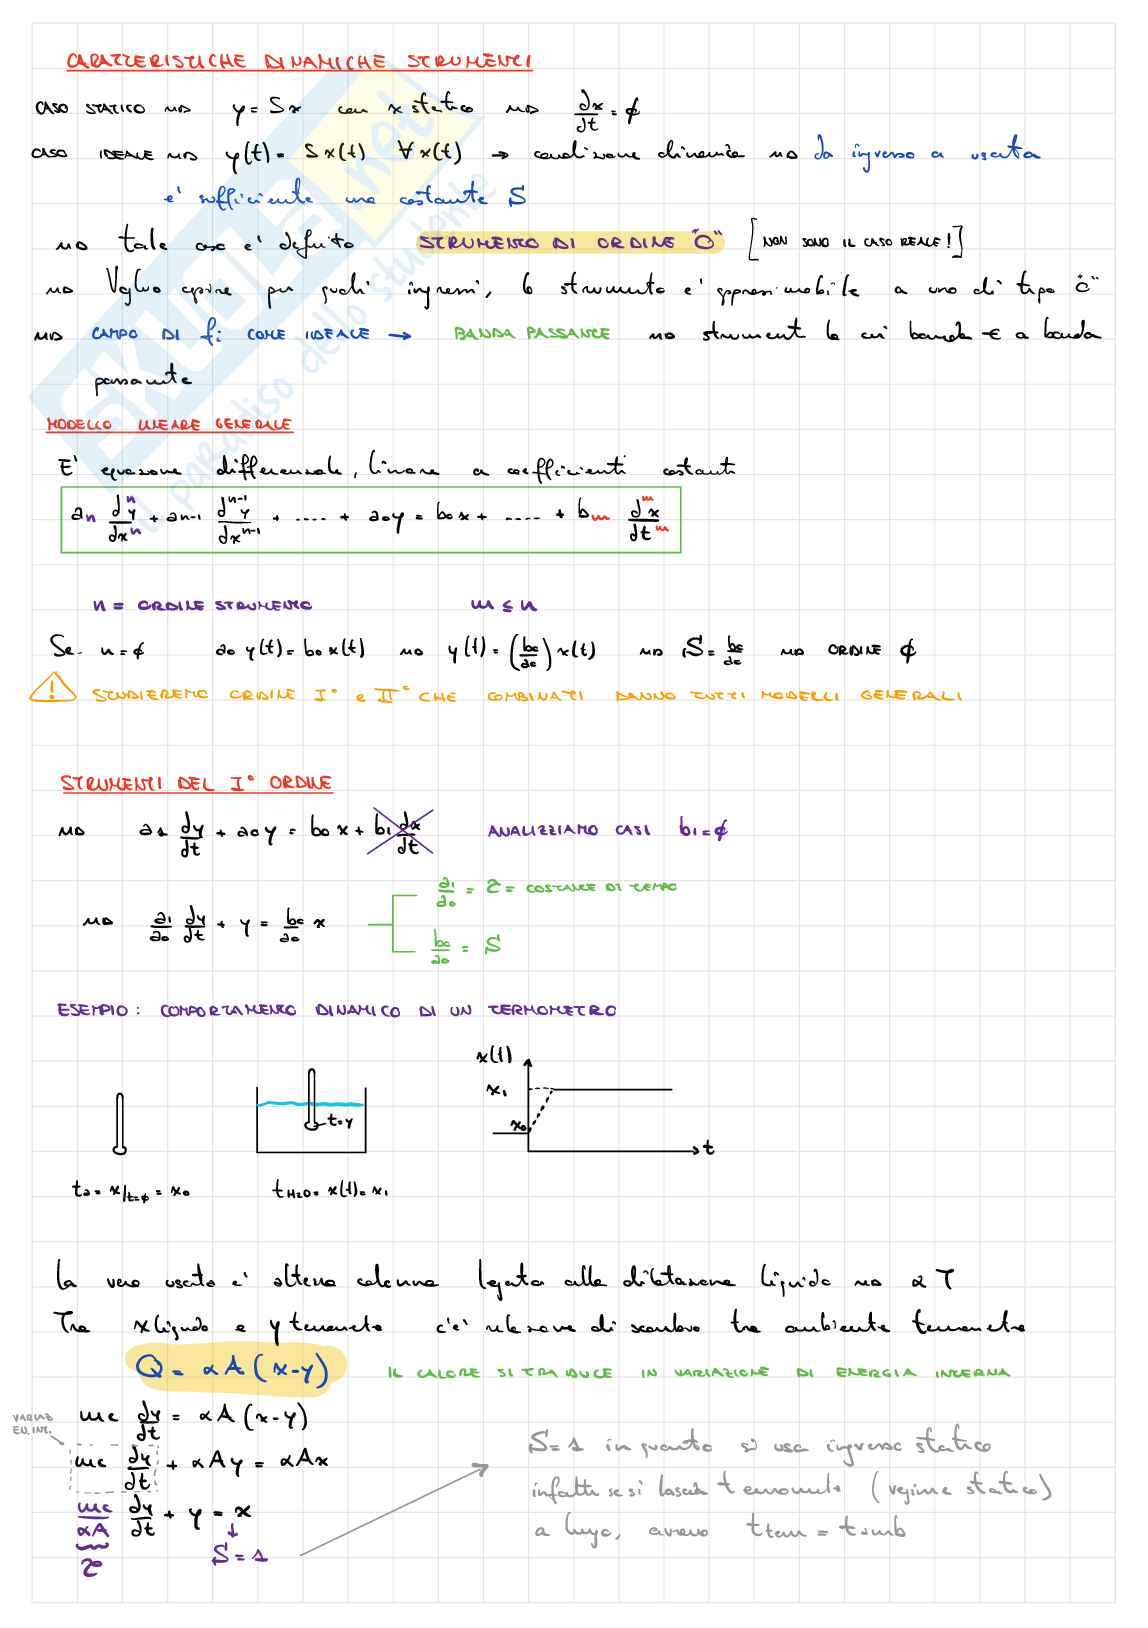 CARATTERISTICHE DINAMICHE STRUMENTI
CASO STATICO → y = Sx con x statico → dx/dt = ϕ
CASO IDEALE → y(t) = S x(t) ∀ x(t) → condizione dinamica → da ingresso a uscita
e' sufficiente una costante S
→ tale caso e' definito STRUMENTO DI ORDINE "O" [NON SONO IL CASO REALE!]
→ Voglio capire per quali ingressi, lo strumento e' approssimabile a uno di tipo "O"
→ CAMPO DI fi COME IDEALE → BANDA PASSANTE → strumenti la cui banda ∈ a banda
passante
MODELLO LINEARE GENERALE
E' equazione differenziale, lineare a coefficienti costanti
an dⁿy/dxⁿ + an-1 dⁿ⁻¹y/dxⁿ⁻¹ + .... + a0y = b0x + .... + bm dᵐx/dtᵐ
n = ORDINE STRUMENTO m ≤ n
Se n = ϕ a0 y(t) = b0 x(t) → y(t) = (b0/a0) x(t) → S = b0/a0 → ORDINE ϕ
! STUDIEREMO ORDINE I° e II° CHE COMBINATI DANNO TUTTI MODELLI GENERALI
STRUMENTI DEL I° ORDINE
→ a1 dy/dt + a0y = b0x + b1 dx/dt ANALIZZIAMO CASI b1 = ϕ
a1/a0 = τ = COSTANTE DI TEMPO
→ a1/a0 dy/dt + y = b0/a0 x
b0/a0 = S
ESEMPIO: COMPORTAMENTO DINAMICO DI UN TERMOMETRO
x(t)
x1
x0
t=y
t
ta = x/t=ϕ = x0 tH2O = x(t) = x1
La vera uscita e' altezza colonna legata alla dilatazione liquido → α T
Tra x liquido e y termometro c'e' relazione di scambio tra ambiente termometro
Q = αA(x-y) IL CALORE SI TRADUCE IN VARIAZIONE DI ENERGIA INTERNA
mc dy/dt = αA(x-y)
VARIAZ
EN. INT.
mc dy/dt + αAy = αAx
mc/αA dy/dt + y = x
τ
S = 1
S=1 in quanto si usa ingresso statico
infatti se si lascia termometro (regime statico)
a lungo, avremo tterm = tamb
SKUOLA.net
il paradiso dello studente